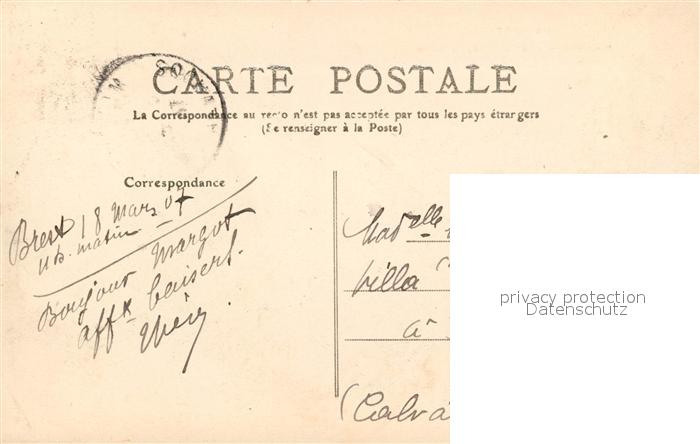 CARTE POSTALE
La Correspondance au recto n'est pas acceptée par tous les pays étrangers
(Se renseigner à la Poste)
Correspondance
Brest 18 Mars 07
matin
Bonjour Margot
aff x baisers.
Madelle
Villa
à
(Calva
privacy protection
Datenschutz